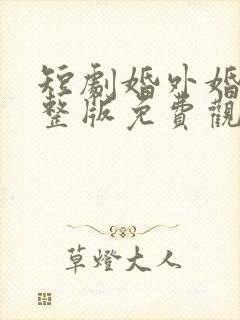 短劇婚外婚
整版免費觀
草燈大人